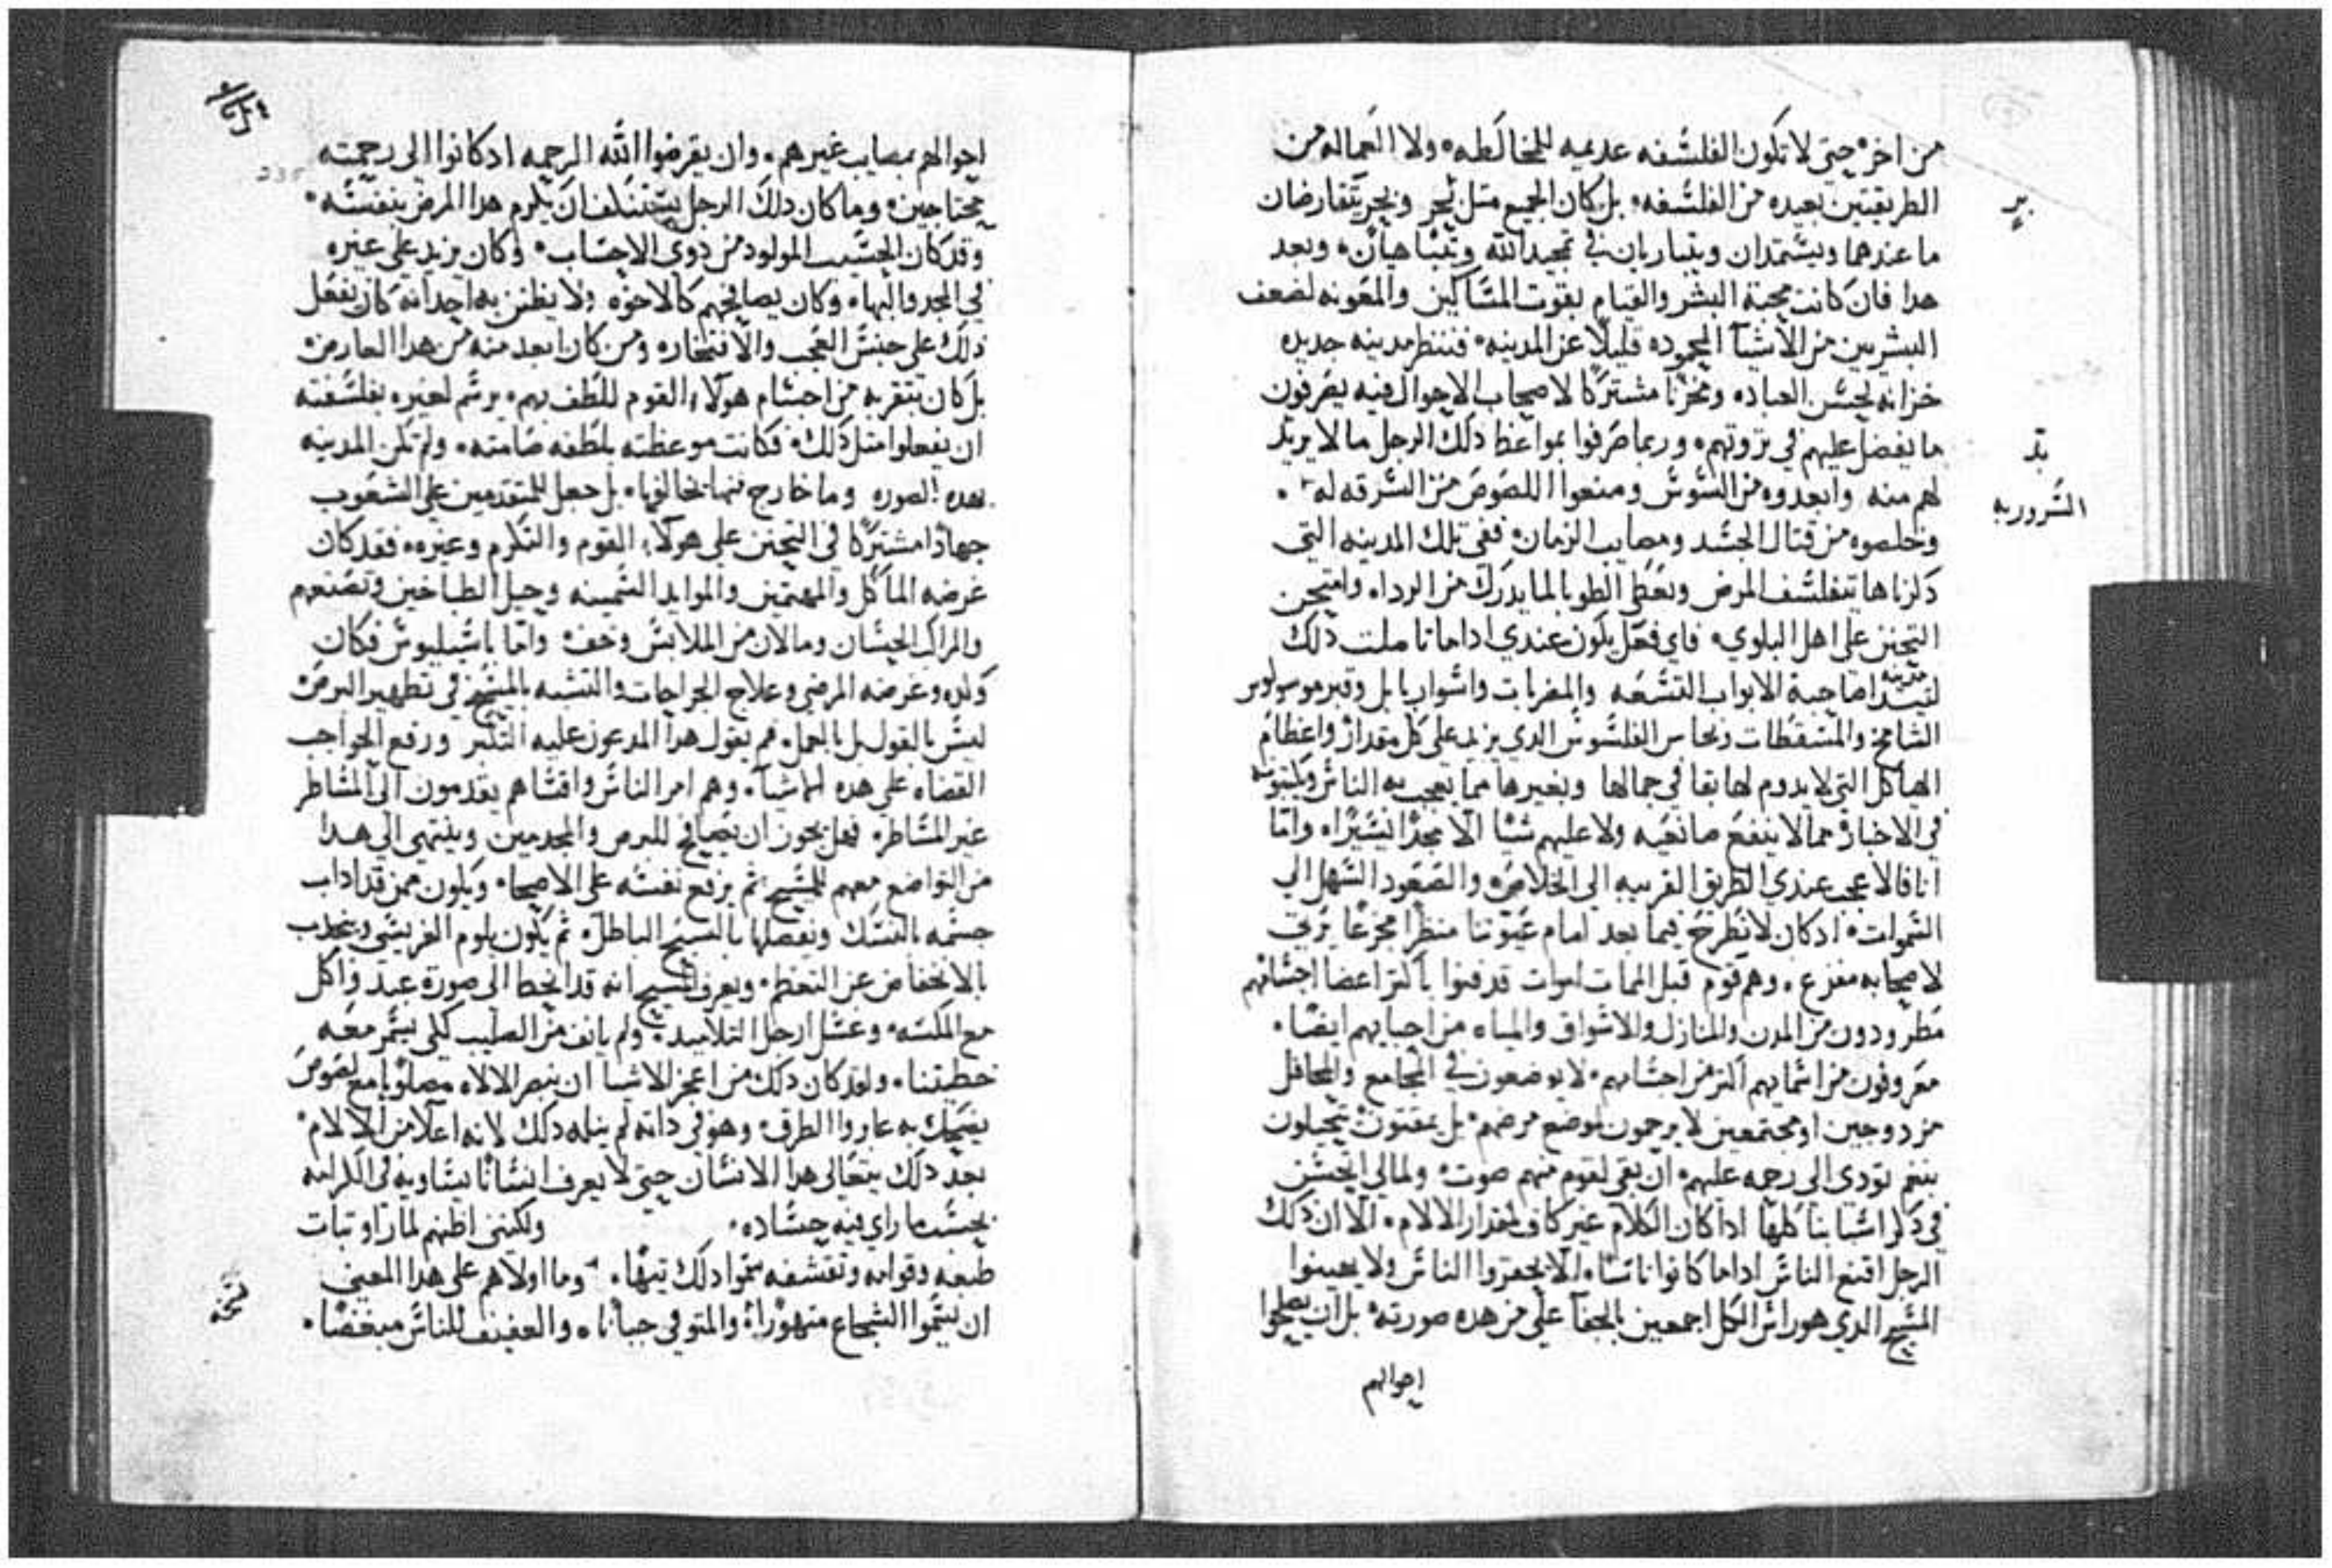 من اخره حتى لا تكون الفلسفه عديمه للمخالطه، ولا العماله من
الطريقتين بعيده من الفلسفه، بل كان الجميع مثل بحر وبحر يتقارضان
ما عندهما ويستمدان ويتباريان في تمجيد الله ويتباهيان، وبعد
هدا فان كانت محبة البشر والقيام بقوت المساكين والمعونه لضعف
البشريين من الاشيآ المحموده قليلاً عن المدينه، فننظر مدينه جديده
خزانه لحسن العباده ومخزنا مشتركا لاصحاب الاحوال فيه يصرفون
ما يفضل عليهم في ثروتهم، وربما صرفوا بمواعظ دلك الرجل ما لا يزيد
لهم منه وابعدوه من السوس ومنعوا اللصوص من السرقه له
وخلصوه من قتال الحسد ومصايب الزمان، ففي تلك المدينه التي
دكرناها يتفلسف المرض ويعطى الطوبا لما يدرك من الرداه وامتحن
التحنن على اهل البلوي، فاي فعل يكون عندي اداما تاملت دلك
مدينه
لتيبدا صاحبة الابواب التسعه والمصريات واسوار بابل وقبر موسولوس
الشامخ والمسقطات ونحاس الفلسوس الدي يزيد على كل مقدار واعظام
الهياكل التي لا يدوم لها بقا في جمالها وبغيرها مما يعجب به الناس ويكتبونه
في الاخبار، مما لا ينفع صانعيه ولا عليهم شيا الا مجدا يسيرا، وامّا
انا فالاعجب عندي الطريق القريبه الى الخلاص، والصعود السهل الي
السموات، ادكان لا يطرح فيما بعد امام عيوننا منظرا مجزعا يرثى
لاصحابه مفزع، وهم قوم قبل الممات اموات قد فنوا باكثر اعضا اجسامهم
مطرودون من المدن والمنازل والاسواق والمياه من احبايهم ايضا،
معروفون من اسمايهم اكثر من اجسامهم، لا يوضعون في المجامع والمحافل
مزدوجين او مجتمعين لا يرحمون لموضع مرضهم، بل يمقتون يتحيلون
بنغم تودي الى رحمه عليهم، ان بقي لقوم منهم صوت، ولمالي اتحسن
في دكر اسبابنا كلها ادا كان الكلام غير كاف لمقدار الالام، الا ان دلك
الرجل اقنع الناس اداما كانوا ناسا، الا يحقروا الناس ولا يهينوا
المسيح الدي هو راس الكل اجمعين بالجفآ على من هده صورته، بل ان يصلحوا
احوالهم
ير
يد
السروريه
احوالهم بمصايب غيرهم، وان يقرضوا الله الرحمه ادكانوا الى رحمته
محتاجين، وما كان دلك الرجل يستنكف ان يلزم هدا المرض بنفسه،
وقد كان الحسيب المولود من دوي الاحساب، وكان يزيد على غيره
في المجد والبهاء وكان يصافحهم كالاخوه ولا يظنن به احد انه كان يفعل
دلك على جنس العجب والافتخار، ومن كان ابعد منه من هدا العارض
بل كان بتقربه من اجسام هولاء القوم للطف بهم، يرسم لغيره بفلسفته
ان يفعلوا مثل دلك، فكانت موعظته بلطفه صامته، ولم تكن المدينه
بهده الصوره وما خارج منها يخالفها، بل جعل للمتقدمين على الشعوب
جهادًا مشتركا في التحنن على هولاء القوم والتكرم وغيره، فقد كان
غرضه الماكل والمهتمين والموايد السمينه وحيل الطباخين وتصنعهم
والمراكب الحسان ومالان من الملابس وخف، وامّا باسيليوس فكان
وكده وغرضه المرضى وعلاج الجراحات والتشبه بالمسيح في تطهير البرص
ليس بالقول بل بالعمل، فم يقول هدا المدعون عليه التكبر ورفع الحواجب
القضاه على هده الاشيآ، وهم امر الناس واقساهم يقدمون الى المساطر
غير المساطر، فهل يجوز ان يصافح للبرص والمجدمين وينتهى الى هدا
من التواضع معهم للمسيح ثم يرفع نفسه على الاصحاء، ويكون ممن قد اداب
جسمه بالنسك ونفسه بالسبح الباطل، ثم يكون يلوم الفريسي ويخدب
بالانخفاض عن التعظم، ويعرف المسيح انه قد انحط الى صورة عبد واكل
مع المكسه، وغسل ارجل التلاميد، ولم يانف من الصليب كلى يسمر معه
خطيتنا، ولقد كان دلك من اعجز الاشيا ان نبصر الالاه مصلوبا مع لصوص
يضحك به عابروا الطرق، وهو في داته لم ينله دلك لانه اعلا من الالام،
بعد دلك يتعالى هدا الانسان حتى لا يعرف انسانا يساويه في الكرامه
بحسب ما راي فيه حساده، ولكنني اظنهم لما راو ثبات
طبعه وقوامه وتقشفه سموا دلك تيها، وما اولاهم على هدا المعنى
ان يسموا الشجاع متهورا، والمتوقي جبانا، والعفيف للناس مبغضا،
235